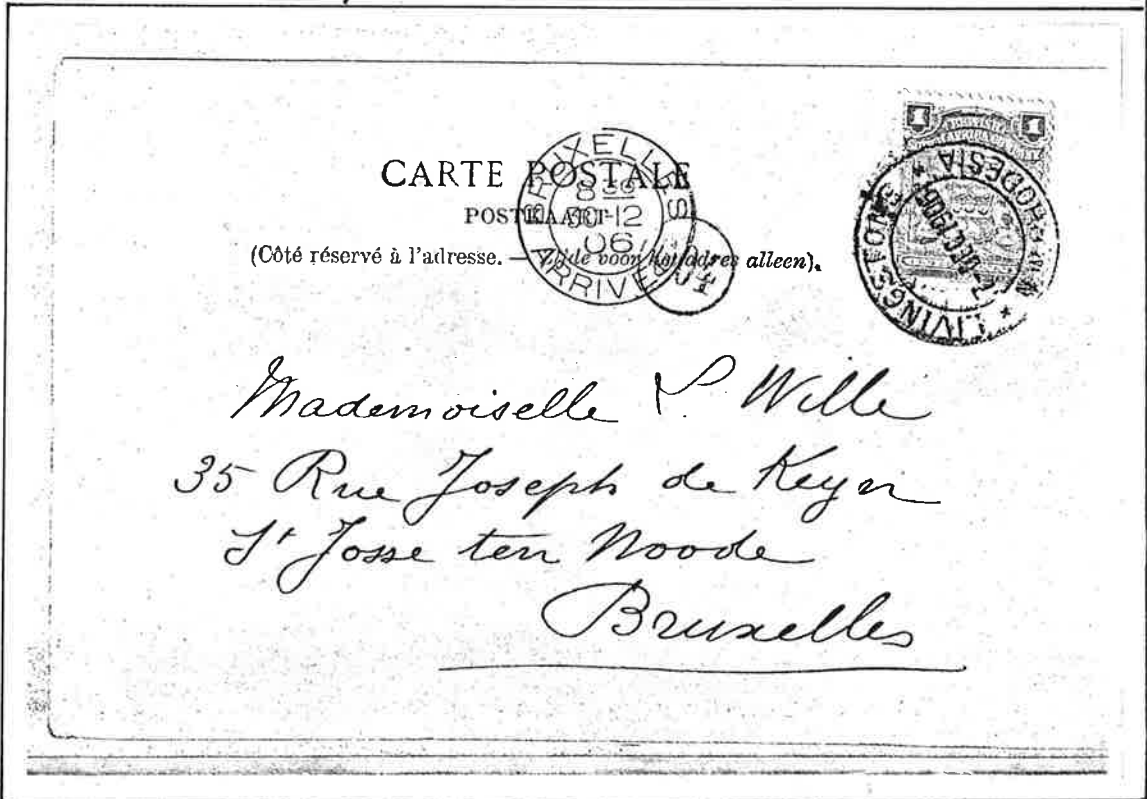 CARTE POSTALE
POSTKAART
(Côté réservé à l'adresse. — Zijde voor het adres alleen).
BRUXELLES
8
30-12
06
ARRIVEE
1 1
RHODESIA
DEC 1906
LIVINGSTONE
Mademoiselle L. Wille
35 Rue Joseph de Keyn
St Josse ten Noode
Bruxelles